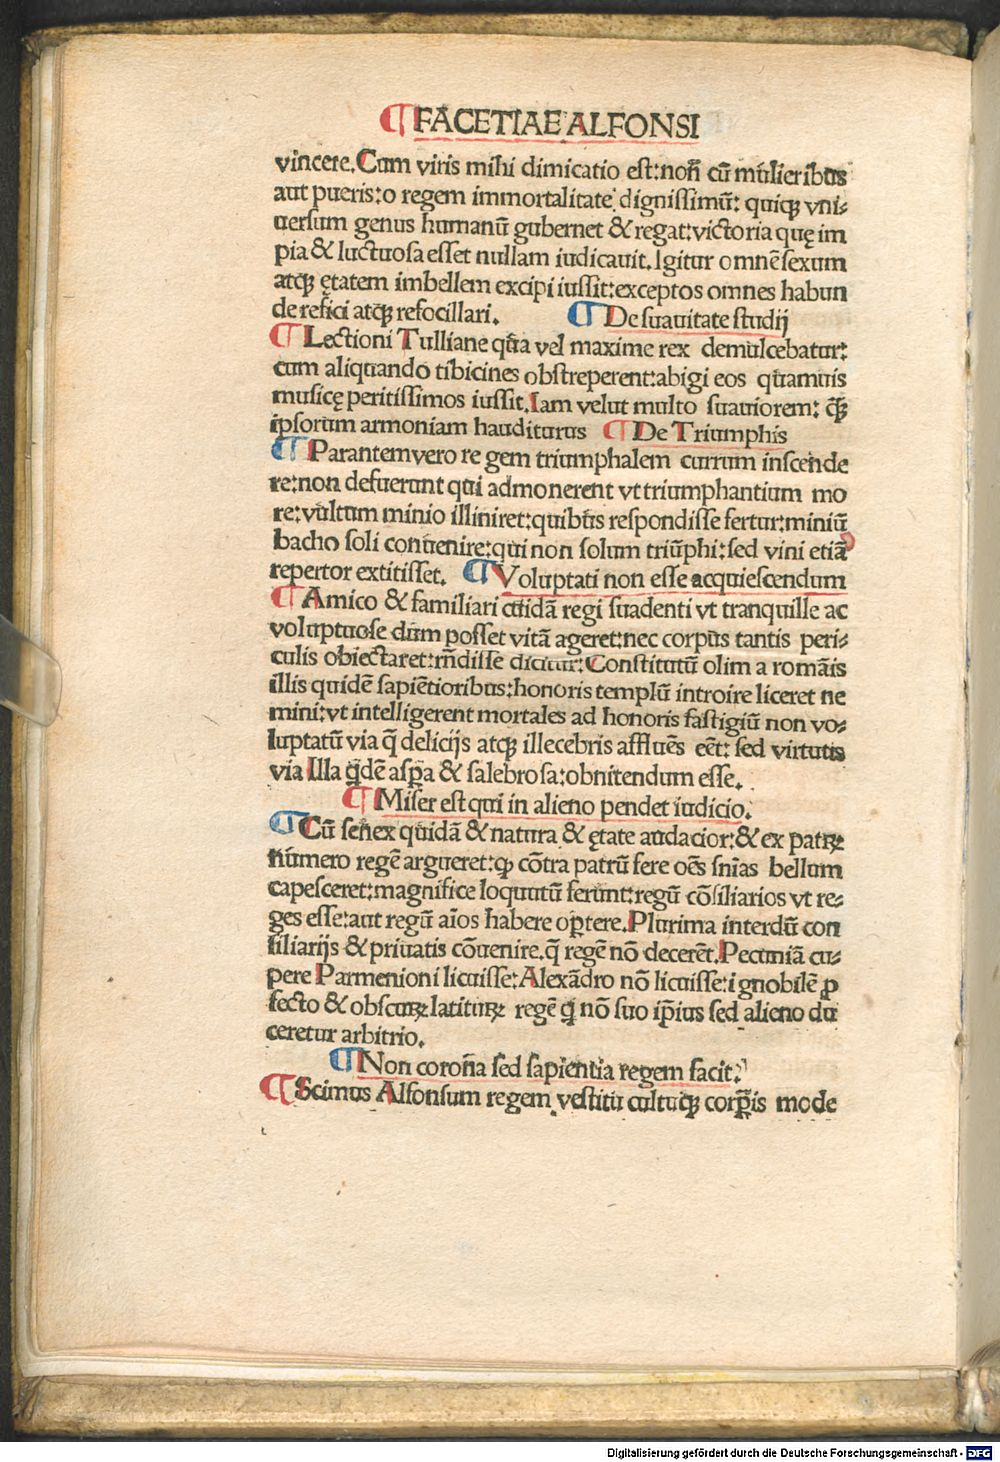 ¶FACETIAE ALFONSI
vincere. Cum viris mihi dimicatio est: non̄ cū mulieribus
aut pueris: o regem immortalitate dignissimū: quiqꝫ vni⸗
uersum genus humanū gubernet & regat: victoria quę im
pia & luctuosa esset nullam iudicauit. Igitur omnē sexum
atqꝫ ętatem imbellem excipi iussit: exceptos omnes habun
de refici atqꝫ refocillari. ¶ De suauitate studij
¶ Lectioni Tulliane qua vel maxime rex demulcebatur:
cum aliquando tibicines obstreperent: abigi eos quamuis
musicę peritissimos iussit. Iam velut multo suauiorem: qꝫ
ipsorum armoniam hauditurus ¶ De Triumphis
¶ Parantem vero re gem triumphalem currum inscende
re: non defuerunt qui admonerent vt triumphantium mo
re: vultum minio illiniret: quibus respondisse fertur: miniū
bacho soli conuenire: qui non solum triūphi: sed vini etiā
repertor extitisset. ¶ Voluptati non esse acquiescendum
¶ Amico & familiari cuidā regi suadenti vt tranquille ac
voluptuose dum posset vitā ageret: nec corpus tantis peri⸗
culis obiectaret: rn̄disse dicitur: Constitutū olim a romāis
illis quidē sapiētioribus: honoris templū introire liceret ne
mini: vt intelligerent mortales ad honoris fastigiū non vo⸗
luptatū via q̄ delicijs atqꝫ illecebris affluēs eēt: sed virtutis
via Illa qdē aspa & salebrosa: obnitendum esse.
¶ Miser est qui in alieno pendet iudicio.
¶ Cū senex quidā & natura & ętate audacior: & ex patrꝝ
numero regē argueret: ꝙ cōtra patrū fere oēs sn̄ias bellum
capesceret: magnifice loquutū ferunt: regū cōsiliarios vt re⸗
ges esse: aut regū aīos habere oꝑtere. Plurima interdū con
siliarijs & priuatis cōuenire. q̄ regē nō decerēt. Pecuniā cu⸗
pere Parmenioni licuisse: Alexādro nō licuisse: i gnobilē ꝓ
fecto & obscurꝝ latiturꝝ regē q̄ nō suo ip̄ius sed alieno du
ceretur arbitrio.
¶ Non coron̄a sed sapientia regem facit.
¶ Scimus Alfonsum regem vestitu cultuqꝫ corꝑis mode
Digitalisierung gefördert durch die Deutsche Forschungsgemeinschaft - DFG